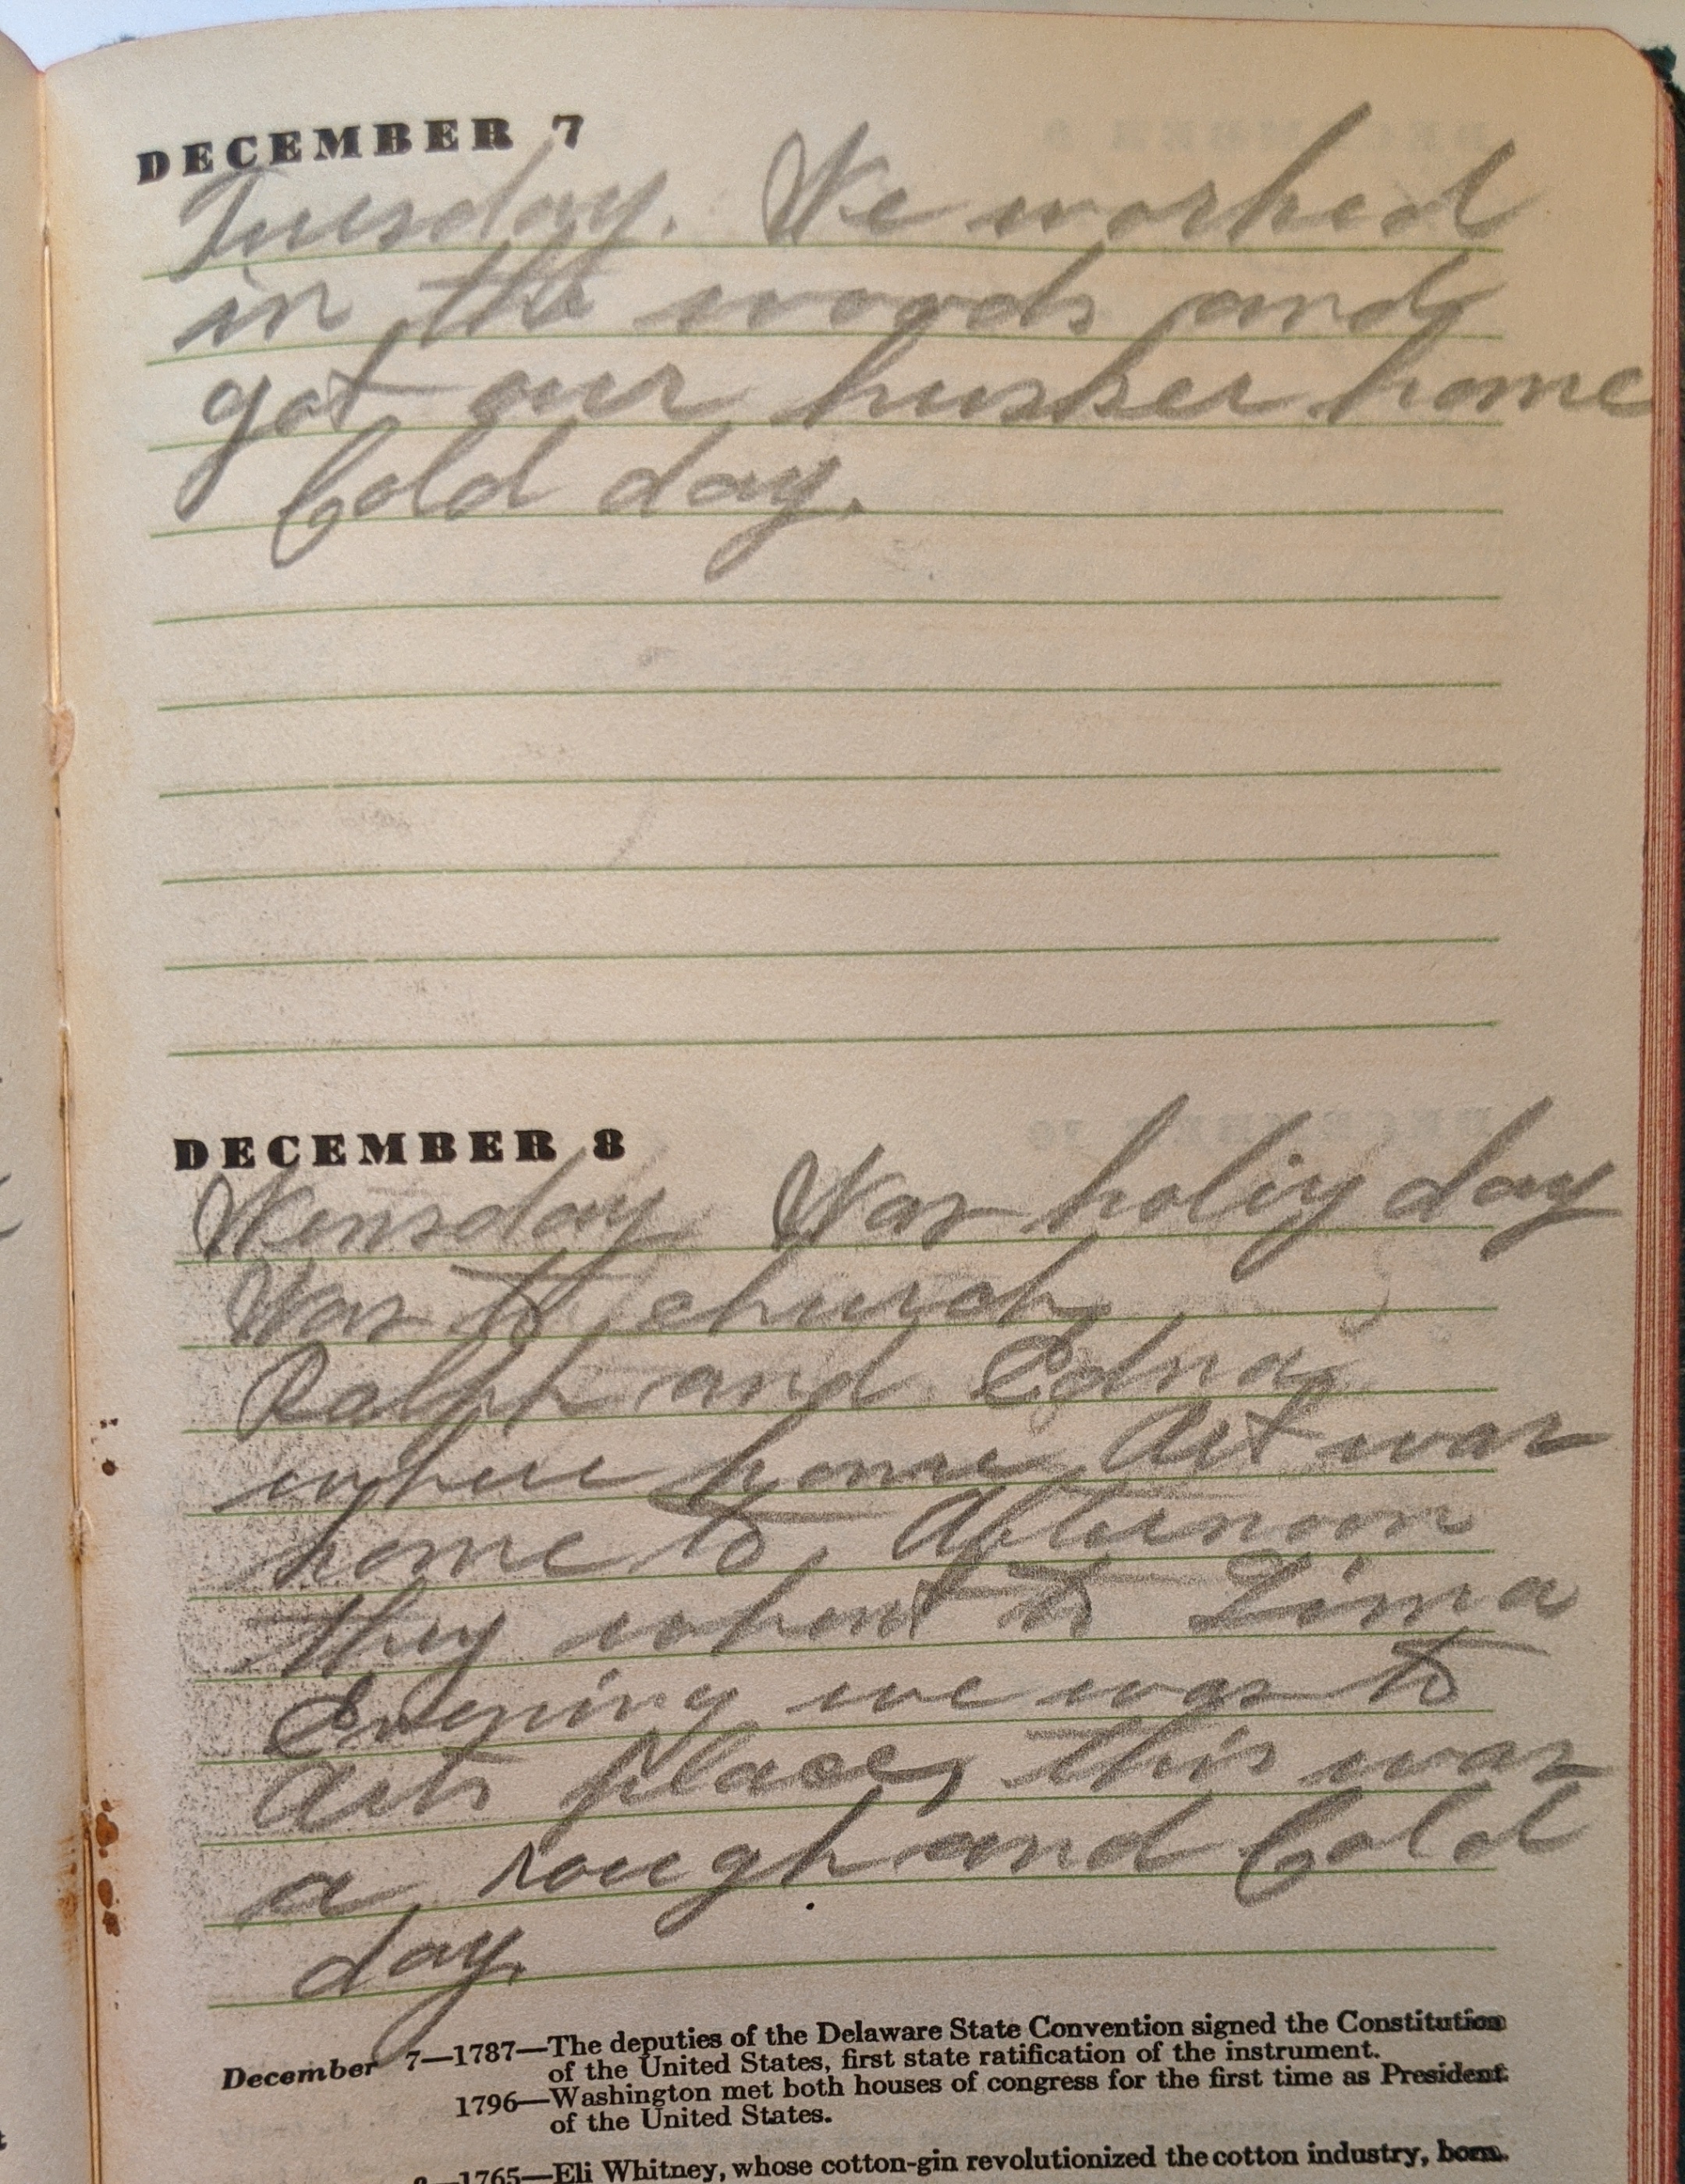 DECEMBER 7
Tuesday. We worked
in the woods and
got our husker home
Cold day.
DECEMBER 8
Wensday Was holiy day
Was to church
Ralph and Edna
where home Art was
home to, Afternoon
they whent to Lima
Evening we was to
Arts place, this was
a rough and Cold
day.
December 7—1787—The deputies of the Delaware State Convention signed the Constitution
of the United States, first state ratification of the instrument.
1796—Washington met both houses of congress for the first time as President
of the United States.
8—1765—Eli Whitney, whose cotton-gin revolutionized the cotton industry, born.